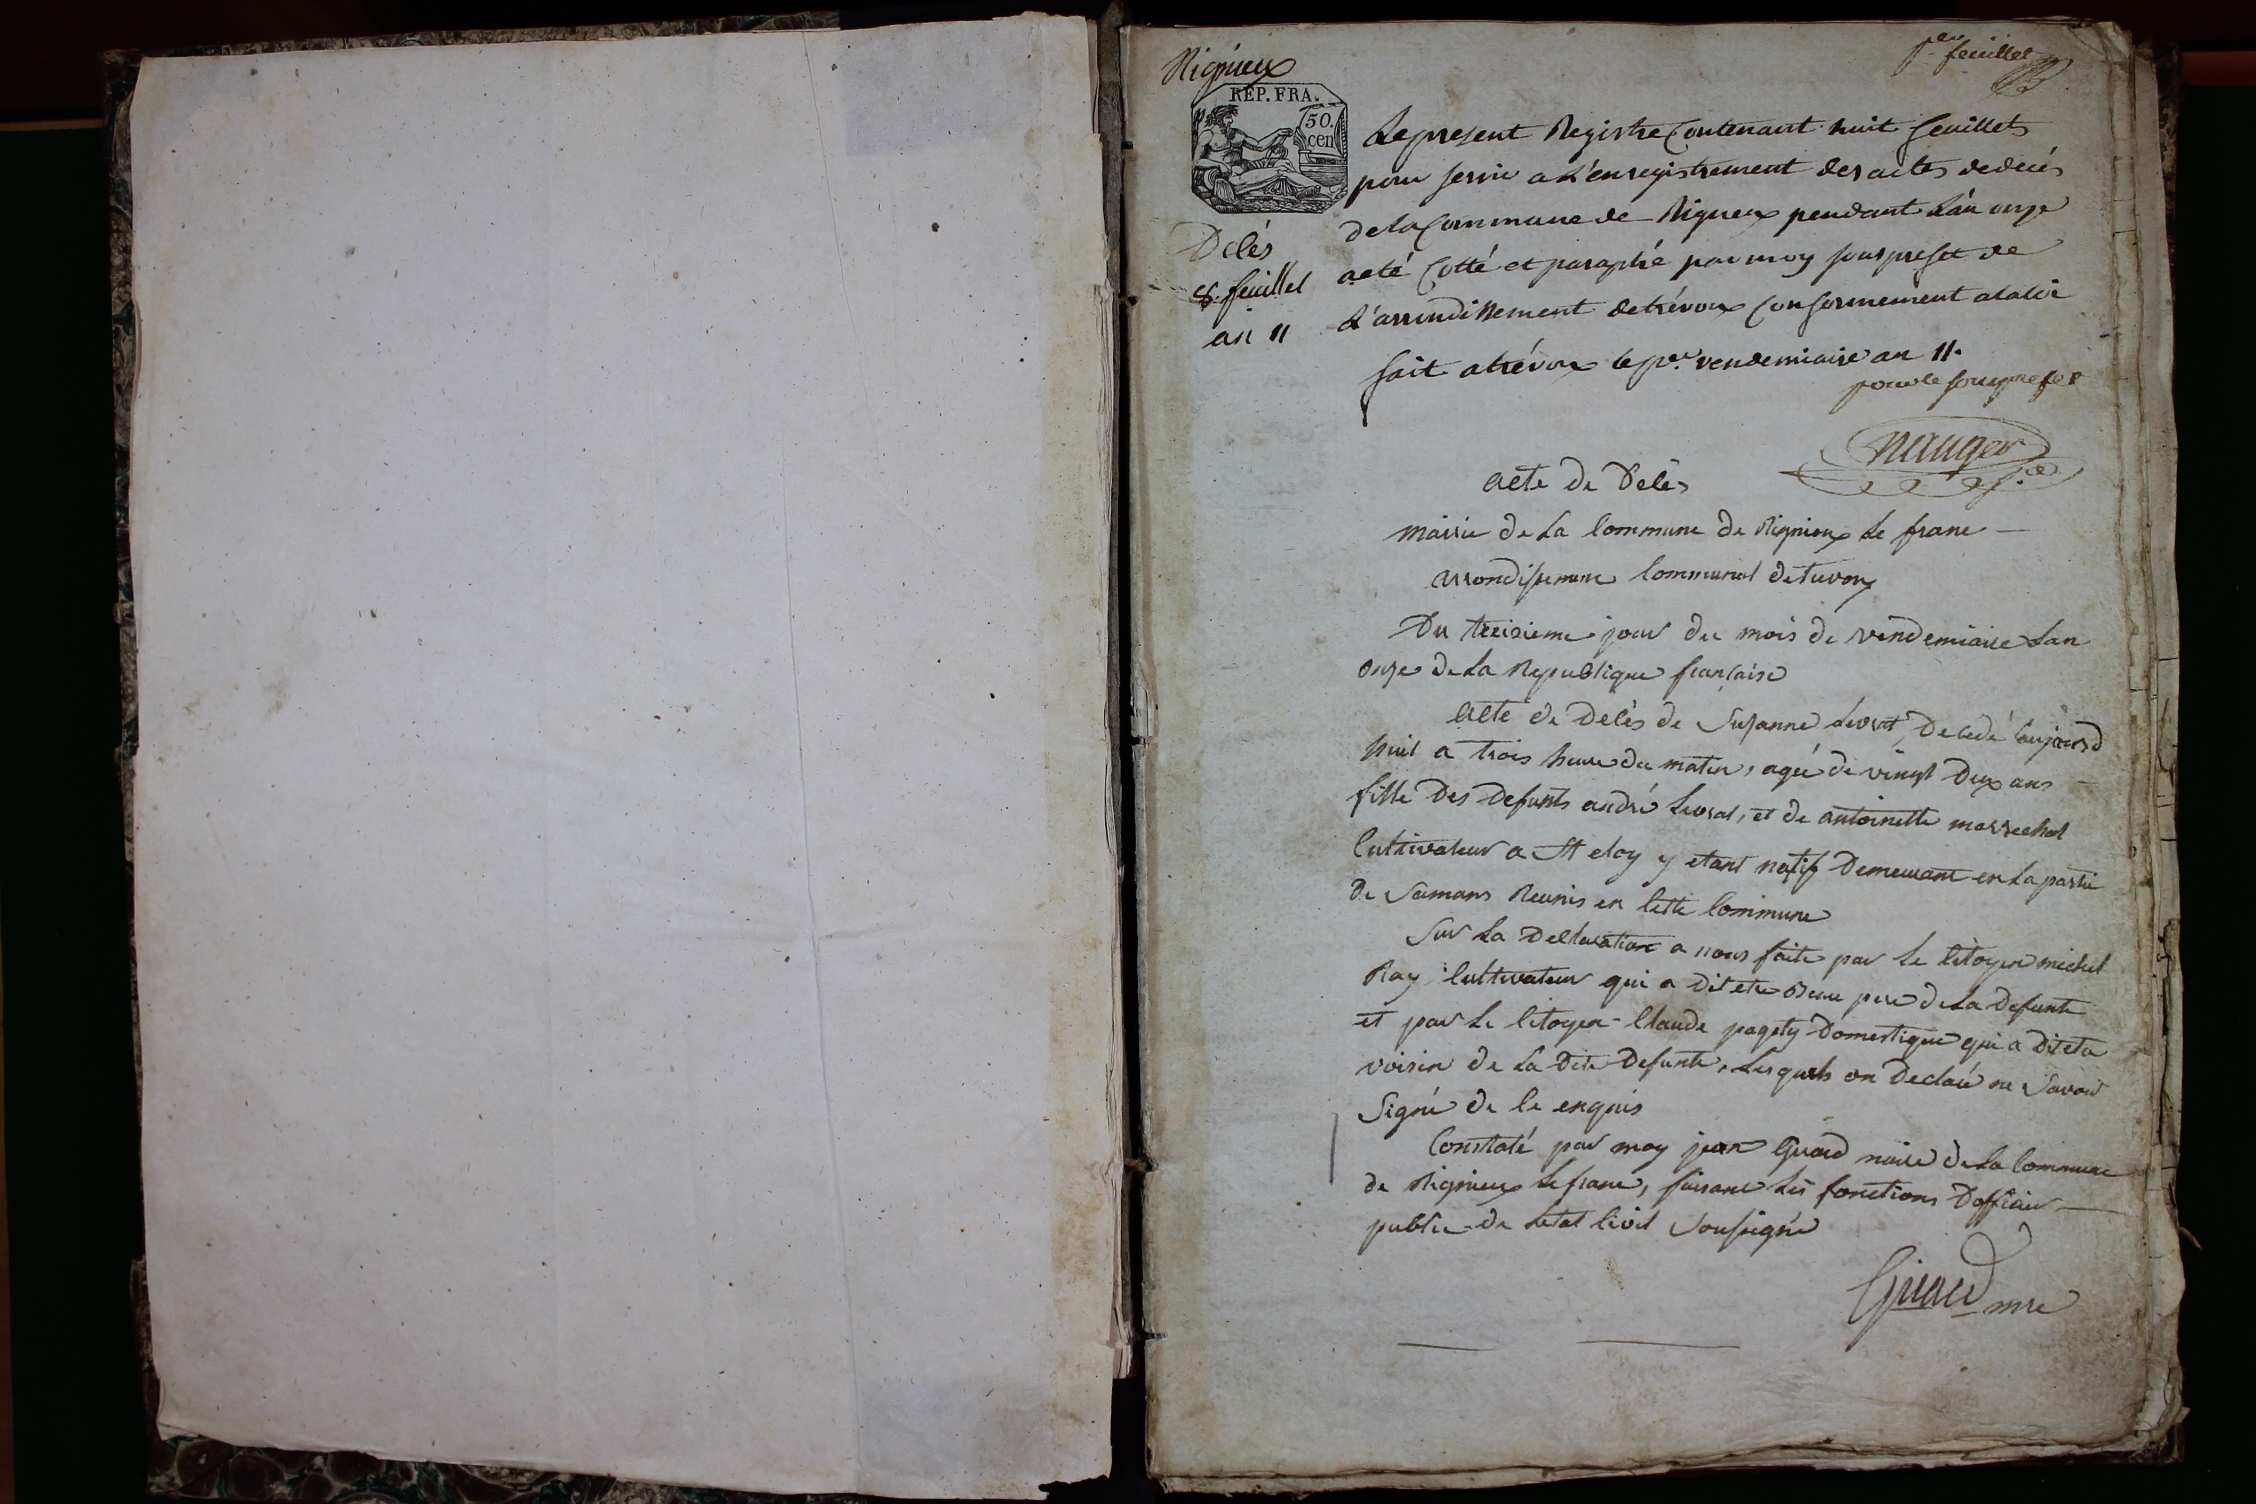 Rignieux
p.er feuillet
REP. FRA.
50.
cen
Le present Registre Contenant huit feuillets
pour servir a L'enregistrement des actes de decés
de la Commune de Rigneux pendant L'an onze
a eté Cotté et paraphé par moy souspreset de
L'arrondissement de trévoux Conformement a la loi
fait a trévoux le p.er vendemiaire an 11.
pour le souspreset
Decés
8. feuillet
an 11
nauger
acte de Decès
Mairie De La Commune De Rignieux Le franc
arrondissement Communal de trevoux
Du treizieme jour du mois de vendemiaire Lan
onze De La Republique francaise
acte de Decès de Suzanne Levrat, Decedé Caujourd
huit a trois heure du matin, agée de vingt Deux ans
fille Des Defunts andré Levrat, et de antoinette marrechal
Cultivateur a St eloy y etant natif Demeurant en La partie
De Samans Reunis en Cette Commune
Sur La Declaration a nous faite par Le Citoyen michel
Ray Cultivateur qui a Dit etre Beau pere De La Defunte
et par Le Citoyen Claude pagety Domestique qui a Dit eta
voisin De La Dite Defunte, Lesquels on Declaré ne Savoir
Signé de Ce enquis
Constaté par moy jean Girard maire De La Commune
de Rignieux Le franc, faisant Les fonctions D'officier
public De Letat Civil Soussigné
Girard mre